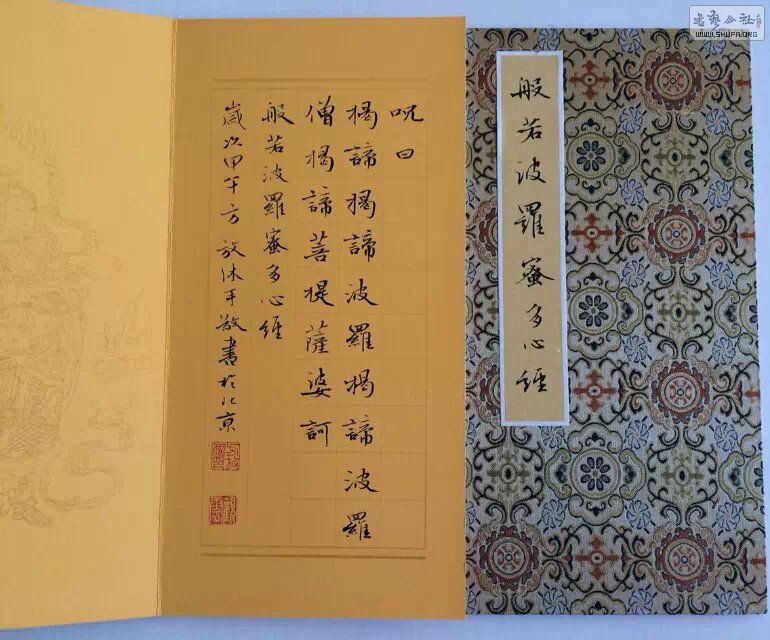 般若波羅蜜多心經
呪曰
揭諦揭諦波羅揭諦波羅
僧揭諦菩提薩婆訶
般若波羅蜜多心經
歲次甲午方放沐手敬書於北京
書藝公社
WWW.SHUFA.ORG